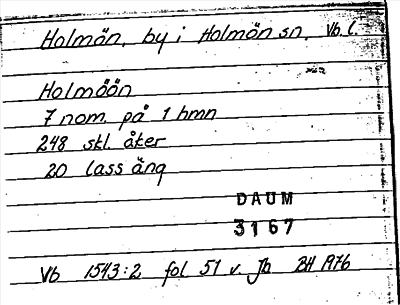 Holmön, by i Holmön sn, Vb l.
Holmöön
7 nom. på 1 hmn
248 skl. åker
20 lass äng
DAUM
3167
Vb 1543:2 fol 51 v. Jb BH 1976